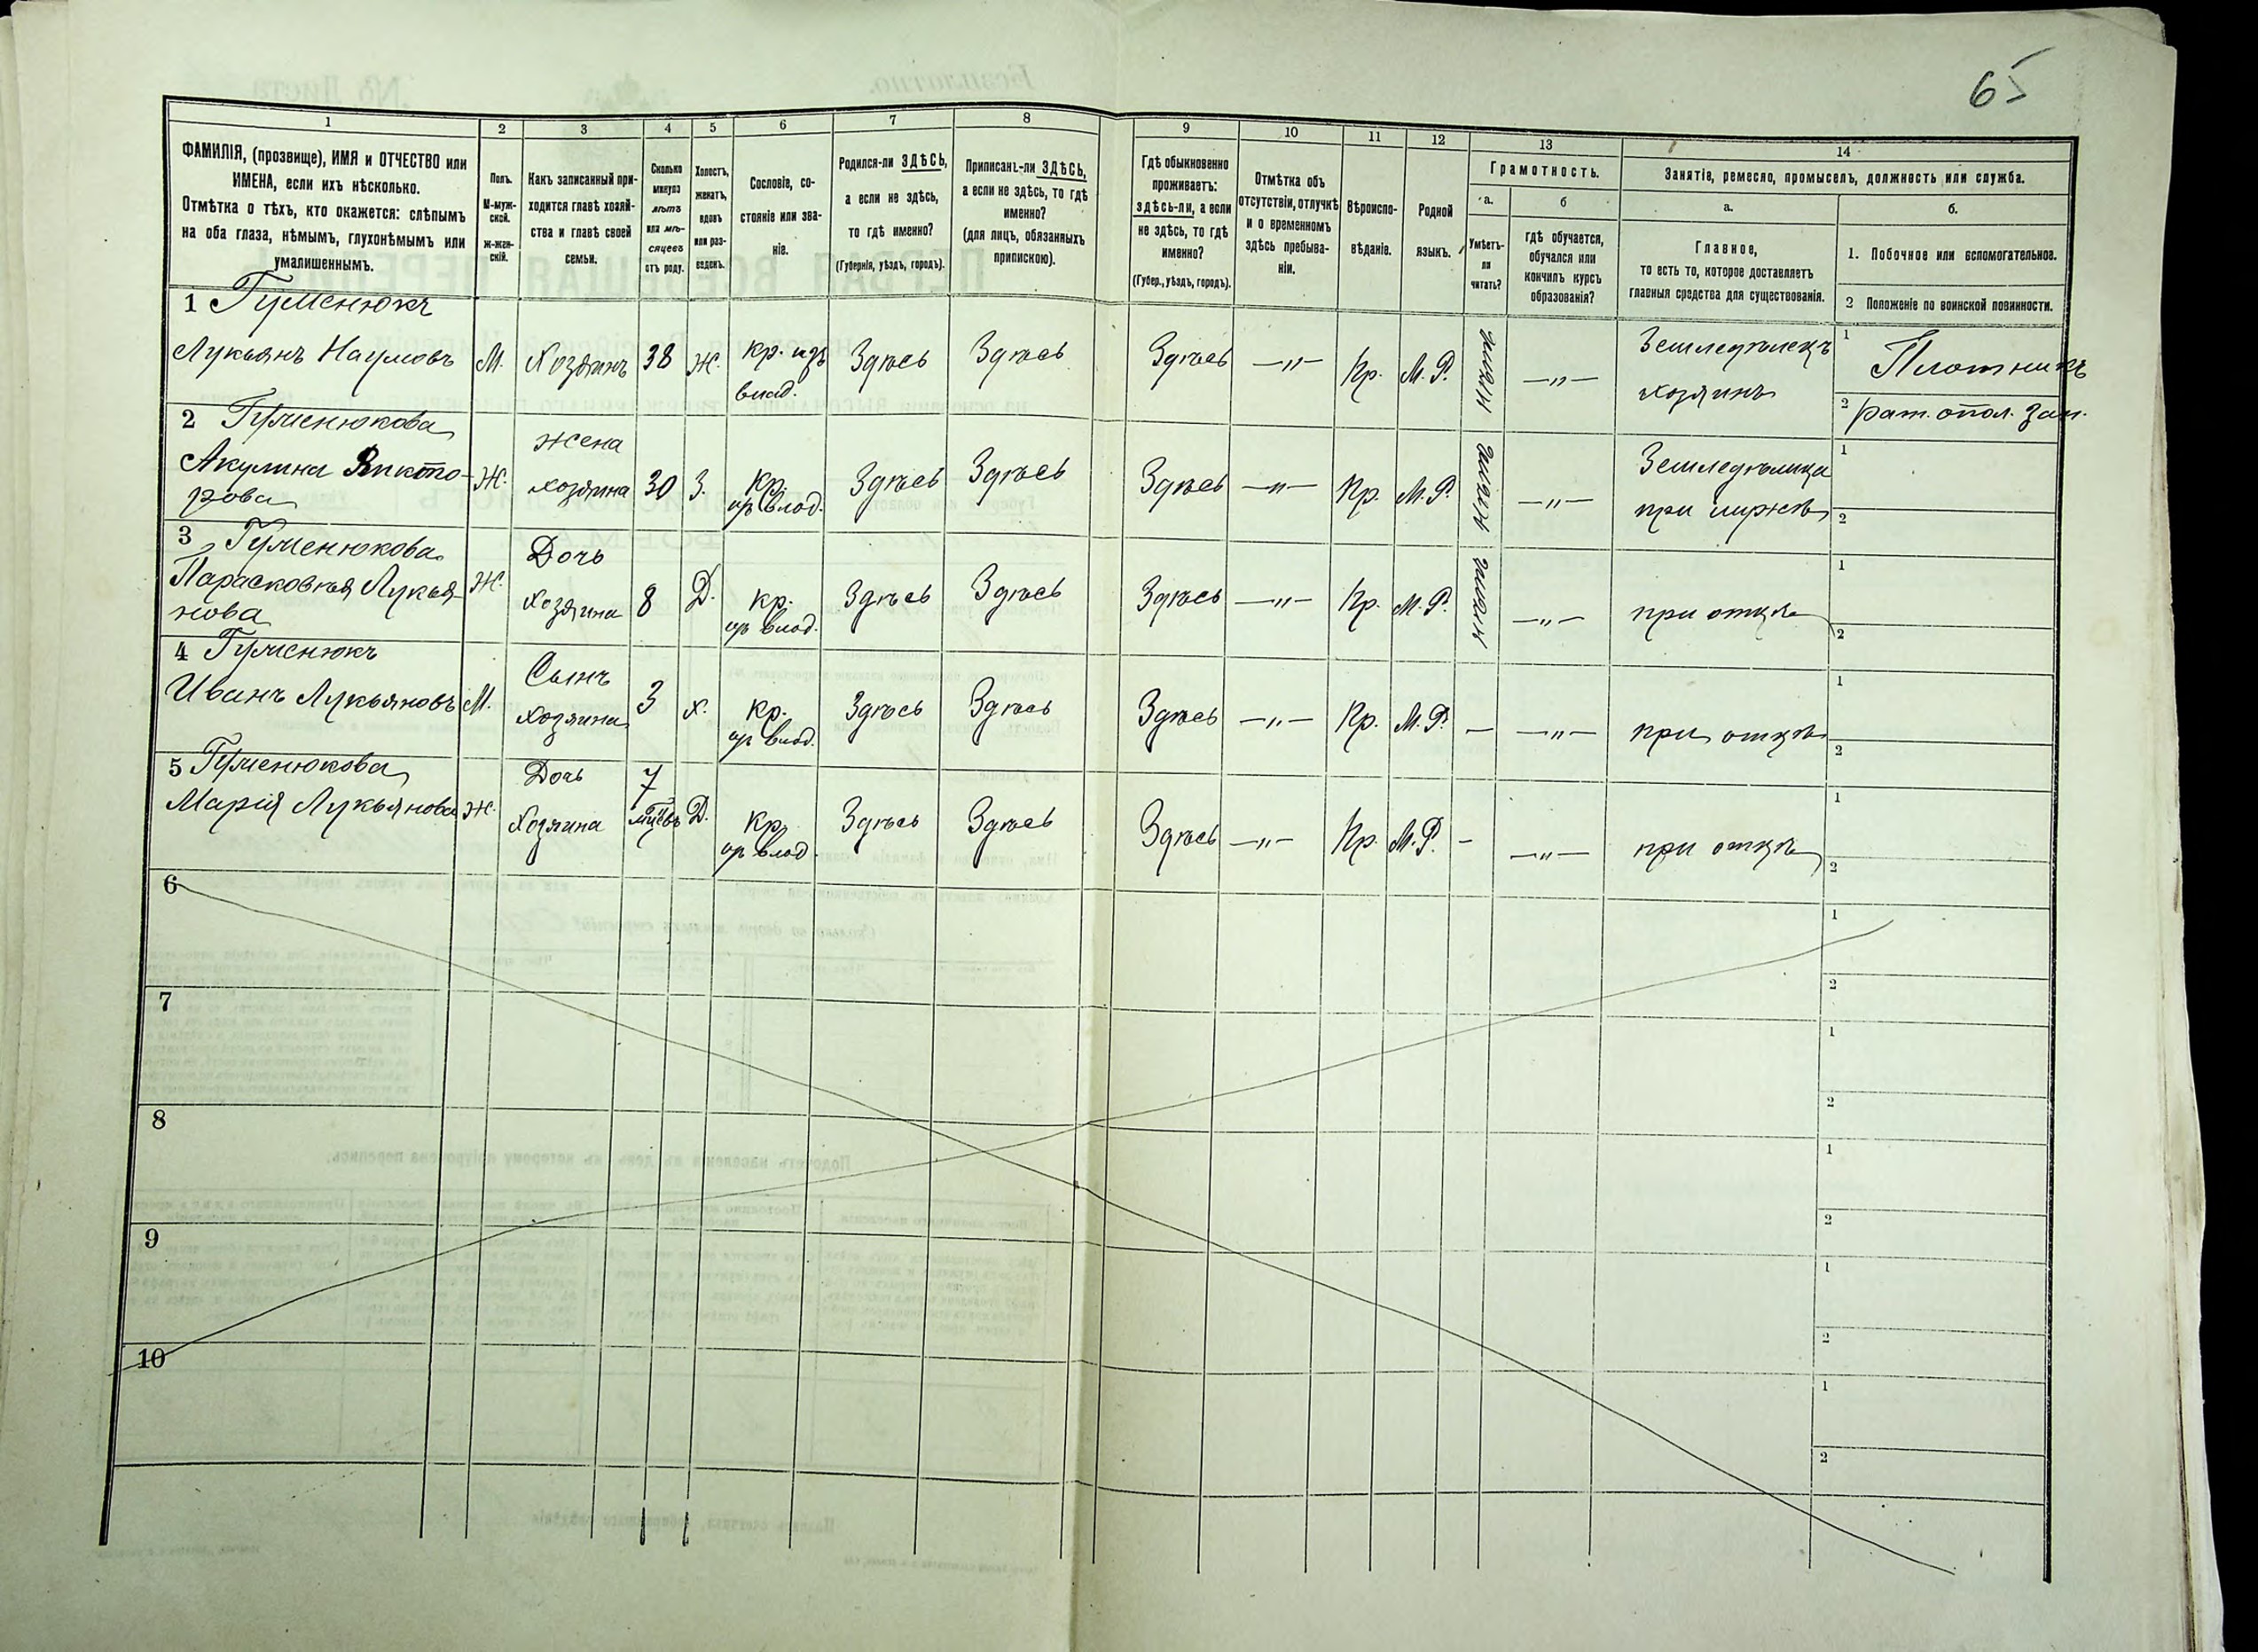 65
1
2
3
4
5
6
7
8
9
10
11
12
13
14
ФАМИЛІЯ, (прозвище), ИМЯ и ОТЧЕСТВО или
ИМЕНА, если ихъ нѣсколько.
Отмѣтка о тѣхъ, кто окажется: слѣпымъ
на оба глаза, нѣмымъ, глухонѣмымъ или
умалишеннымъ.
Полъ.
М-муж-
ской.
Ж-жен-
скій.
Какъ записанный при-
ходится главѣ хозяй-
ства и главѣ своей
семьи.
Сколько
минуло
лѣтъ
или мѣ-
сяцевъ
отъ роду.
Холостъ,
женатъ,
вдовъ
или раз-
веденъ.
Сословіе, со-
стояніе или зва-
ніе.
Родился-ли ЗДѢСЬ,
а если не здѣсь,
то гдѣ именно?
(Губернія, уѣздъ, городъ).
Приписанъ-ли ЗДѢСЬ,
а если не здѣсь, то гдѣ
именно?
(для лицъ, обязанныхъ
припискою).
Гдѣ обыкновенно
проживаетъ:
здѣсь-ли, а если
не здѣсь, то гдѣ
именно?
(Губер., уѣздъ, городъ).
Отмѣтка объ
отсутствіи, отлучкѣ
и о временномъ
здѣсь пребыва-
ніи.
Вѣроиспо-
вѣданіе.
Родной
языкъ.
Грамотность.
а.
Умѣетъ-
ли
читать?
б
гдѣ обучается,
обучался или
кончилъ курсъ
образованія?
Занятіе, ремесло, промыселъ, должность или служба.
а.
Главное,
то есть то, которое доставляетъ
главныя средства для существованія.
б.
1. Побочное или вспомогательное.
2 Положеніе по воинской повинности.
1 Гуменюкъ
Лукьянъ Наумовъ М. Хозяинъ 38 Ж. Кр. изъ влад. Здѣсь Здѣсь Здѣсь —"— Пр. М.Р. неумѣт —"— Земледѣлецъ хозяинъ 1 Плотникъ
2 рат. опол. зап.
2 Гуменюкова
Акулина Викто-
рова Ж. Жена хозяина 30 З. Кр. изъ влад. Здѣсь Здѣсь Здѣсь —"— Пр. М.Р. неумѣт —"— Земледѣлица при мужѣ 1
2
3 Гуменюкова
Парасковья Лукья-
нова Ж. Дочь Хозяина 8 Д. Кр. изъ влад. Здѣсь Здѣсь Здѣсь —"— Пр. М.Р. неумѣт —"— при отцѣ 1
2
4 Гуменюкъ
Иванъ Лукьяновъ М. Сынъ хозяина 3 Х. Кр. изъ влад. Здѣсь Здѣсь Здѣсь —"— Пр. М.Р. — —"— при отцѣ 1
2
5 Гуменюкова
Марія Лукьянова Ж. Дочь Хозяина 7 мѣсяцевъ Д. Кр. изъ влад. Здѣсь Здѣсь Здѣсь —"— Пр. М.Р. — —"— при отцѣ 1
2
6
1
2
7
1
2
8
1
2
9
1
2
10
1
2